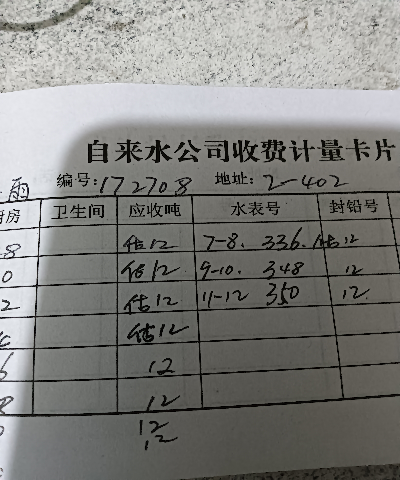 自来水公司收费计量卡片
雨 编号:172708 地址:2-402
房 卫生间 应收吨 水表号 封铅号
8 估12 7-8. 336. 估12
0 估12 9-10. 348 12
2 估12 11-12 350 12
估12
6 12
8 12
12
12